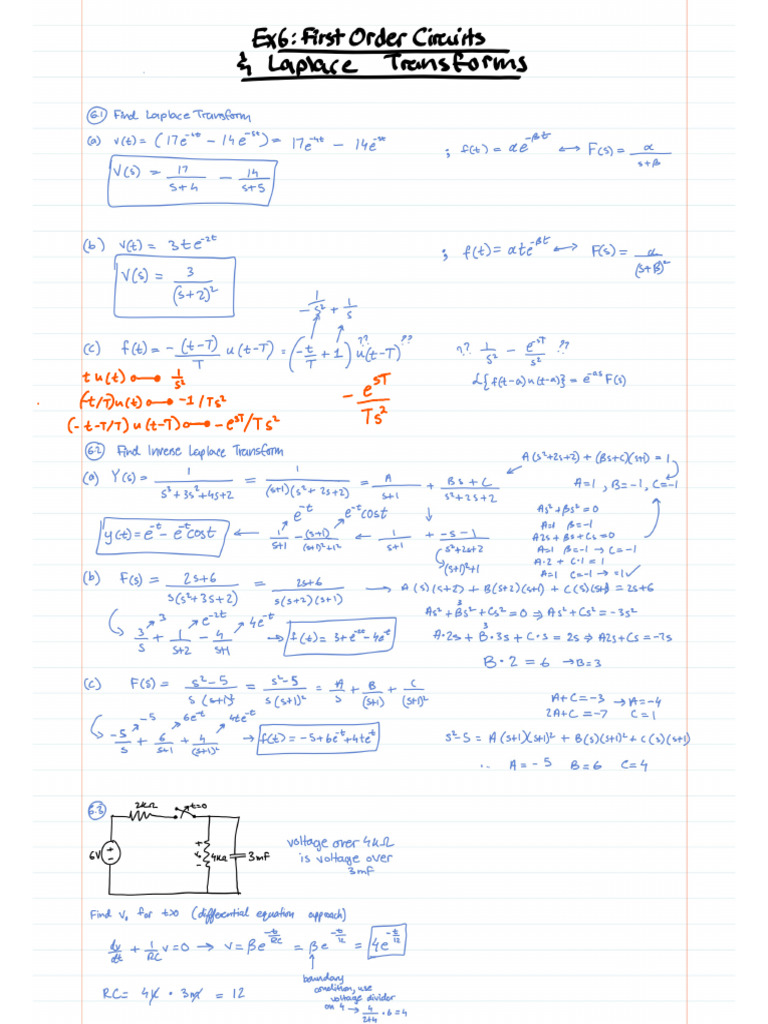 Ex6: First Order Circuits
& Laplace Transforms
6.1 Find Laplace Transform
(a) v(t) = (17e^-4t - 14e^-5t) = 17e^-4t - 14e^-5t ; f(t) = αe^-βt ↔ F(s) = α/(s+β)
V(s) = 17/(s+4) - 14/(s+5)
(b) v(t) = 3te^-2t ; f(t) = αte^-βt ↔ F(s) = α/(s+β)^2
V(s) = 3/(s+2)^2
-1/s^2 + 1/s
(c) f(t) = -(t-T)/T u(t-T) = (-t/T + 1)^?? u(t-T)^?? ?? 1/s^2 - e^sT/s^2 ??
L{f(t-a)u(t-a)} = e^-as F(s)
t u(t) 1/s^2
(-t/T)u(t) -1/Ts^2
-e^sT/Ts^2
(-t-T/T) u(t-T) -e^sT/Ts^2
6.2 Find Inverse Laplace Transform
(a) Y(s) = 1/(s^3+3s^2+4s+2) = 1/((s+1)(s^2+2s+2)) = A/(s+1) + (Bs+C)/(s^2+2s+2)
A(s^2+2s+2) + (Bs+C)(s+1) = 1
A=1, B=-1, C=-1
As^2+Bs^2=0
A=1 B=-1
A2s+Bs+Cs=0
A=1 B=-1 → C=-1
A·2 + C·1 = 1
A=1 C=-1 → =1✓
y(t) = e^-t - e^-t cost ← 1/(s+1) - (s+1)/((s+1)^2+1^2) ← 1/(s+1) + (-s-1)/(s^2+2s+2)
e^-t e^-t cost
(s+1)^2+1
(b) F(s) = (2s+6)/(s(s^2+3s+2)) = (2s+6)/(s(s+2)(s+1)) → A(s)(s+2) + B(s+2)(s+1) + C(s)(s+1) = 2s+6
3 e^-2t 4e^-t
3/s + 1/(s+2) - 4/(s+1) → f(t) = 3+e^-2t-4e^-t
As^2 + Bs^2 + Cs^2 = 0 ⇒ As^2+Cs^2 = -3s^2
3
A·2s + B·3s + C·s = 2s ⇒ A2s+Cs = -7s
3
B·2 = 6 → B=3
A+C=-3 → A=-4
2A+C=-7 C=1
(c) F(s) = (s^2-5)/(s(s+1)^2) = (s^2-5)/(s(s+1)^2) = A/s + B/(s+1) + C/(s+1)^2
-5 6e^-t 4te^-t
-5/s + 6/(s+1) + 4/(s+1)^2 → f(t) = -5+6e^-t+4te^-t
s^2-5 = A(s+1)(s+1)^2 + B(s)(s+1)^2 + C(s)(s+1)
∴ A=-5 B=6 C=4
6.3
2kΩ t=0
6V + - + v₀ - 4kΩ 3mF
voltage over 4kΩ
is voltage over
3mF
Find v₀ for t>0 (differential equation approach)
dv/dt + 1/RC v=0 → v=βe^-t/RC = βe^-t/12 = 4e^-t/12
RC = 4k · 3m = 12
boundary
condition, use
voltage divider
on 4 → 4/(2+4)·6=4